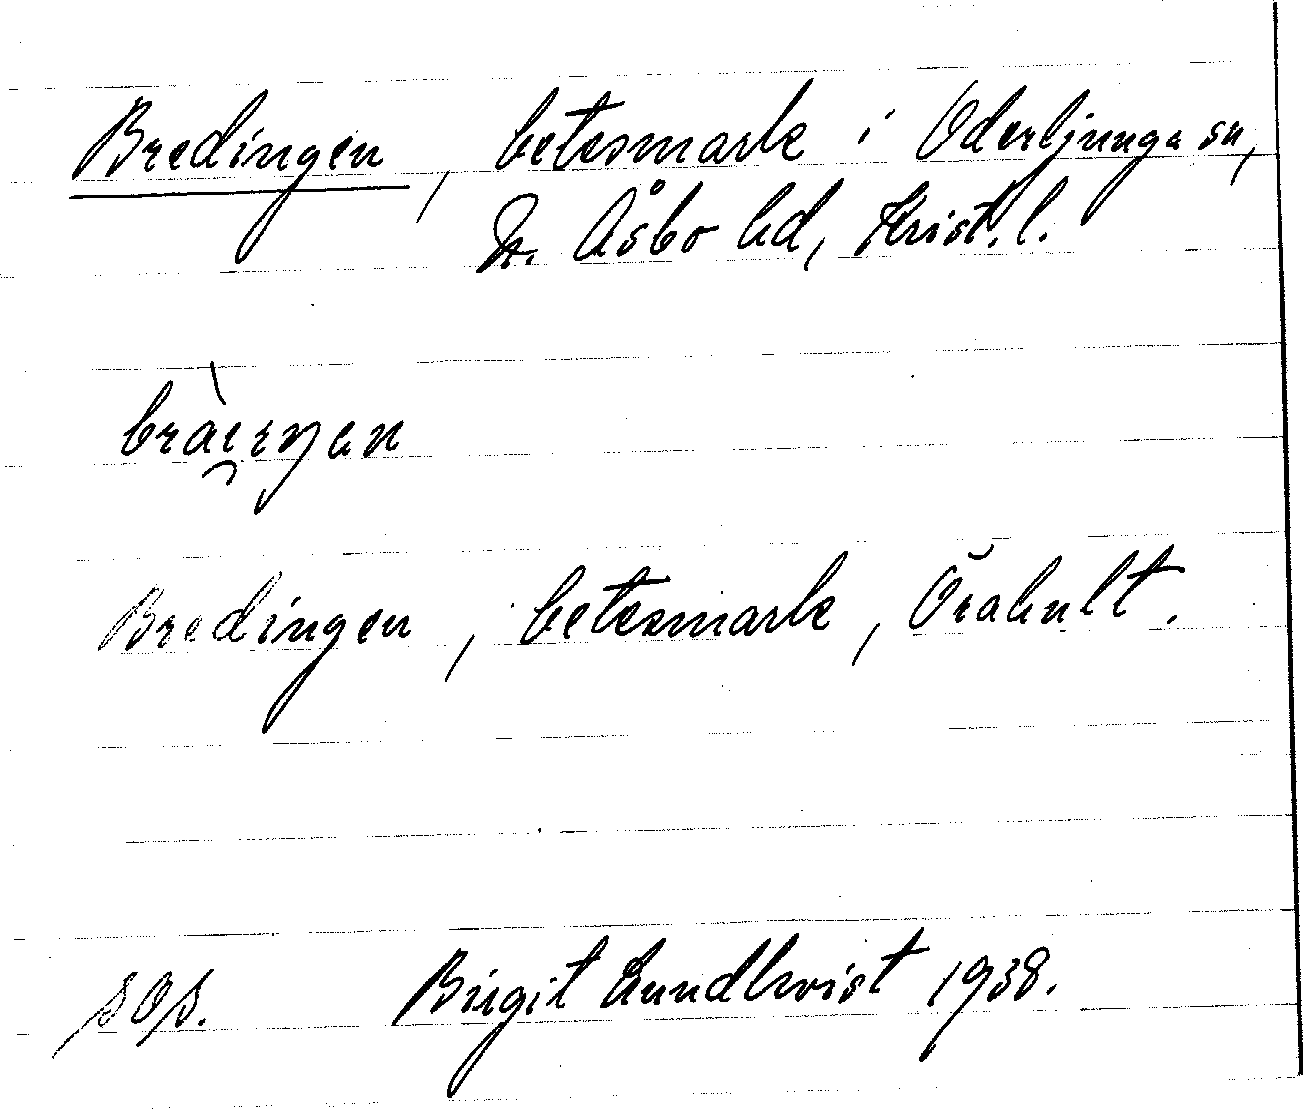 Bredingen, betesmark i Oderljunga sn,
N. Åsbo hd, Krist. l.
Bredingen, betesmark, Örahult.
sos. Birgit Lundkvist 1938.